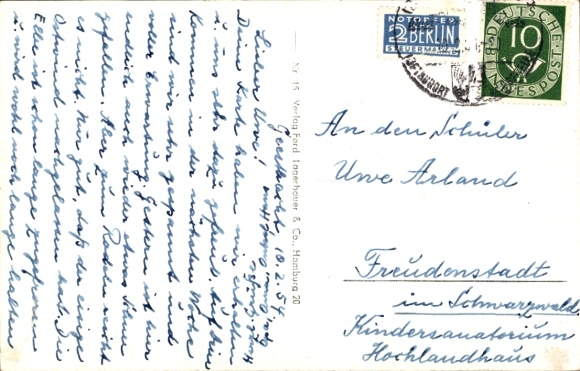 Geesthacht, 10.2.54
Lieber Uwe!
Deine Karte haben wir erhalten
u. uns sehr dazu gefreut. Auf dein
Kommen in der nächsten Woche
sind wir sehr gespannt und
voller Erwartung. Gestern ist hier
endlich auch wieder etwas Schnee
gefallen. Aber zum Rodeln reicht
es nicht. Nur gut, daß der eisige
Ostwind nachgelassen hat. Die
Elbe ist schon lange zugefroren
u. wird wohl noch lange halten
Nr. 15 Verlag Ferd. Lagerbauer & Co., Hamburg 20
NOTOPFER
2 BERLIN
STEUERMARKE
DEUTSCHE
10
BUNDESPOST
An den Schüler
Uwe Arland
Freudenstadt
im Schwarzwald
Kindersanatorium
Hochlandhaus